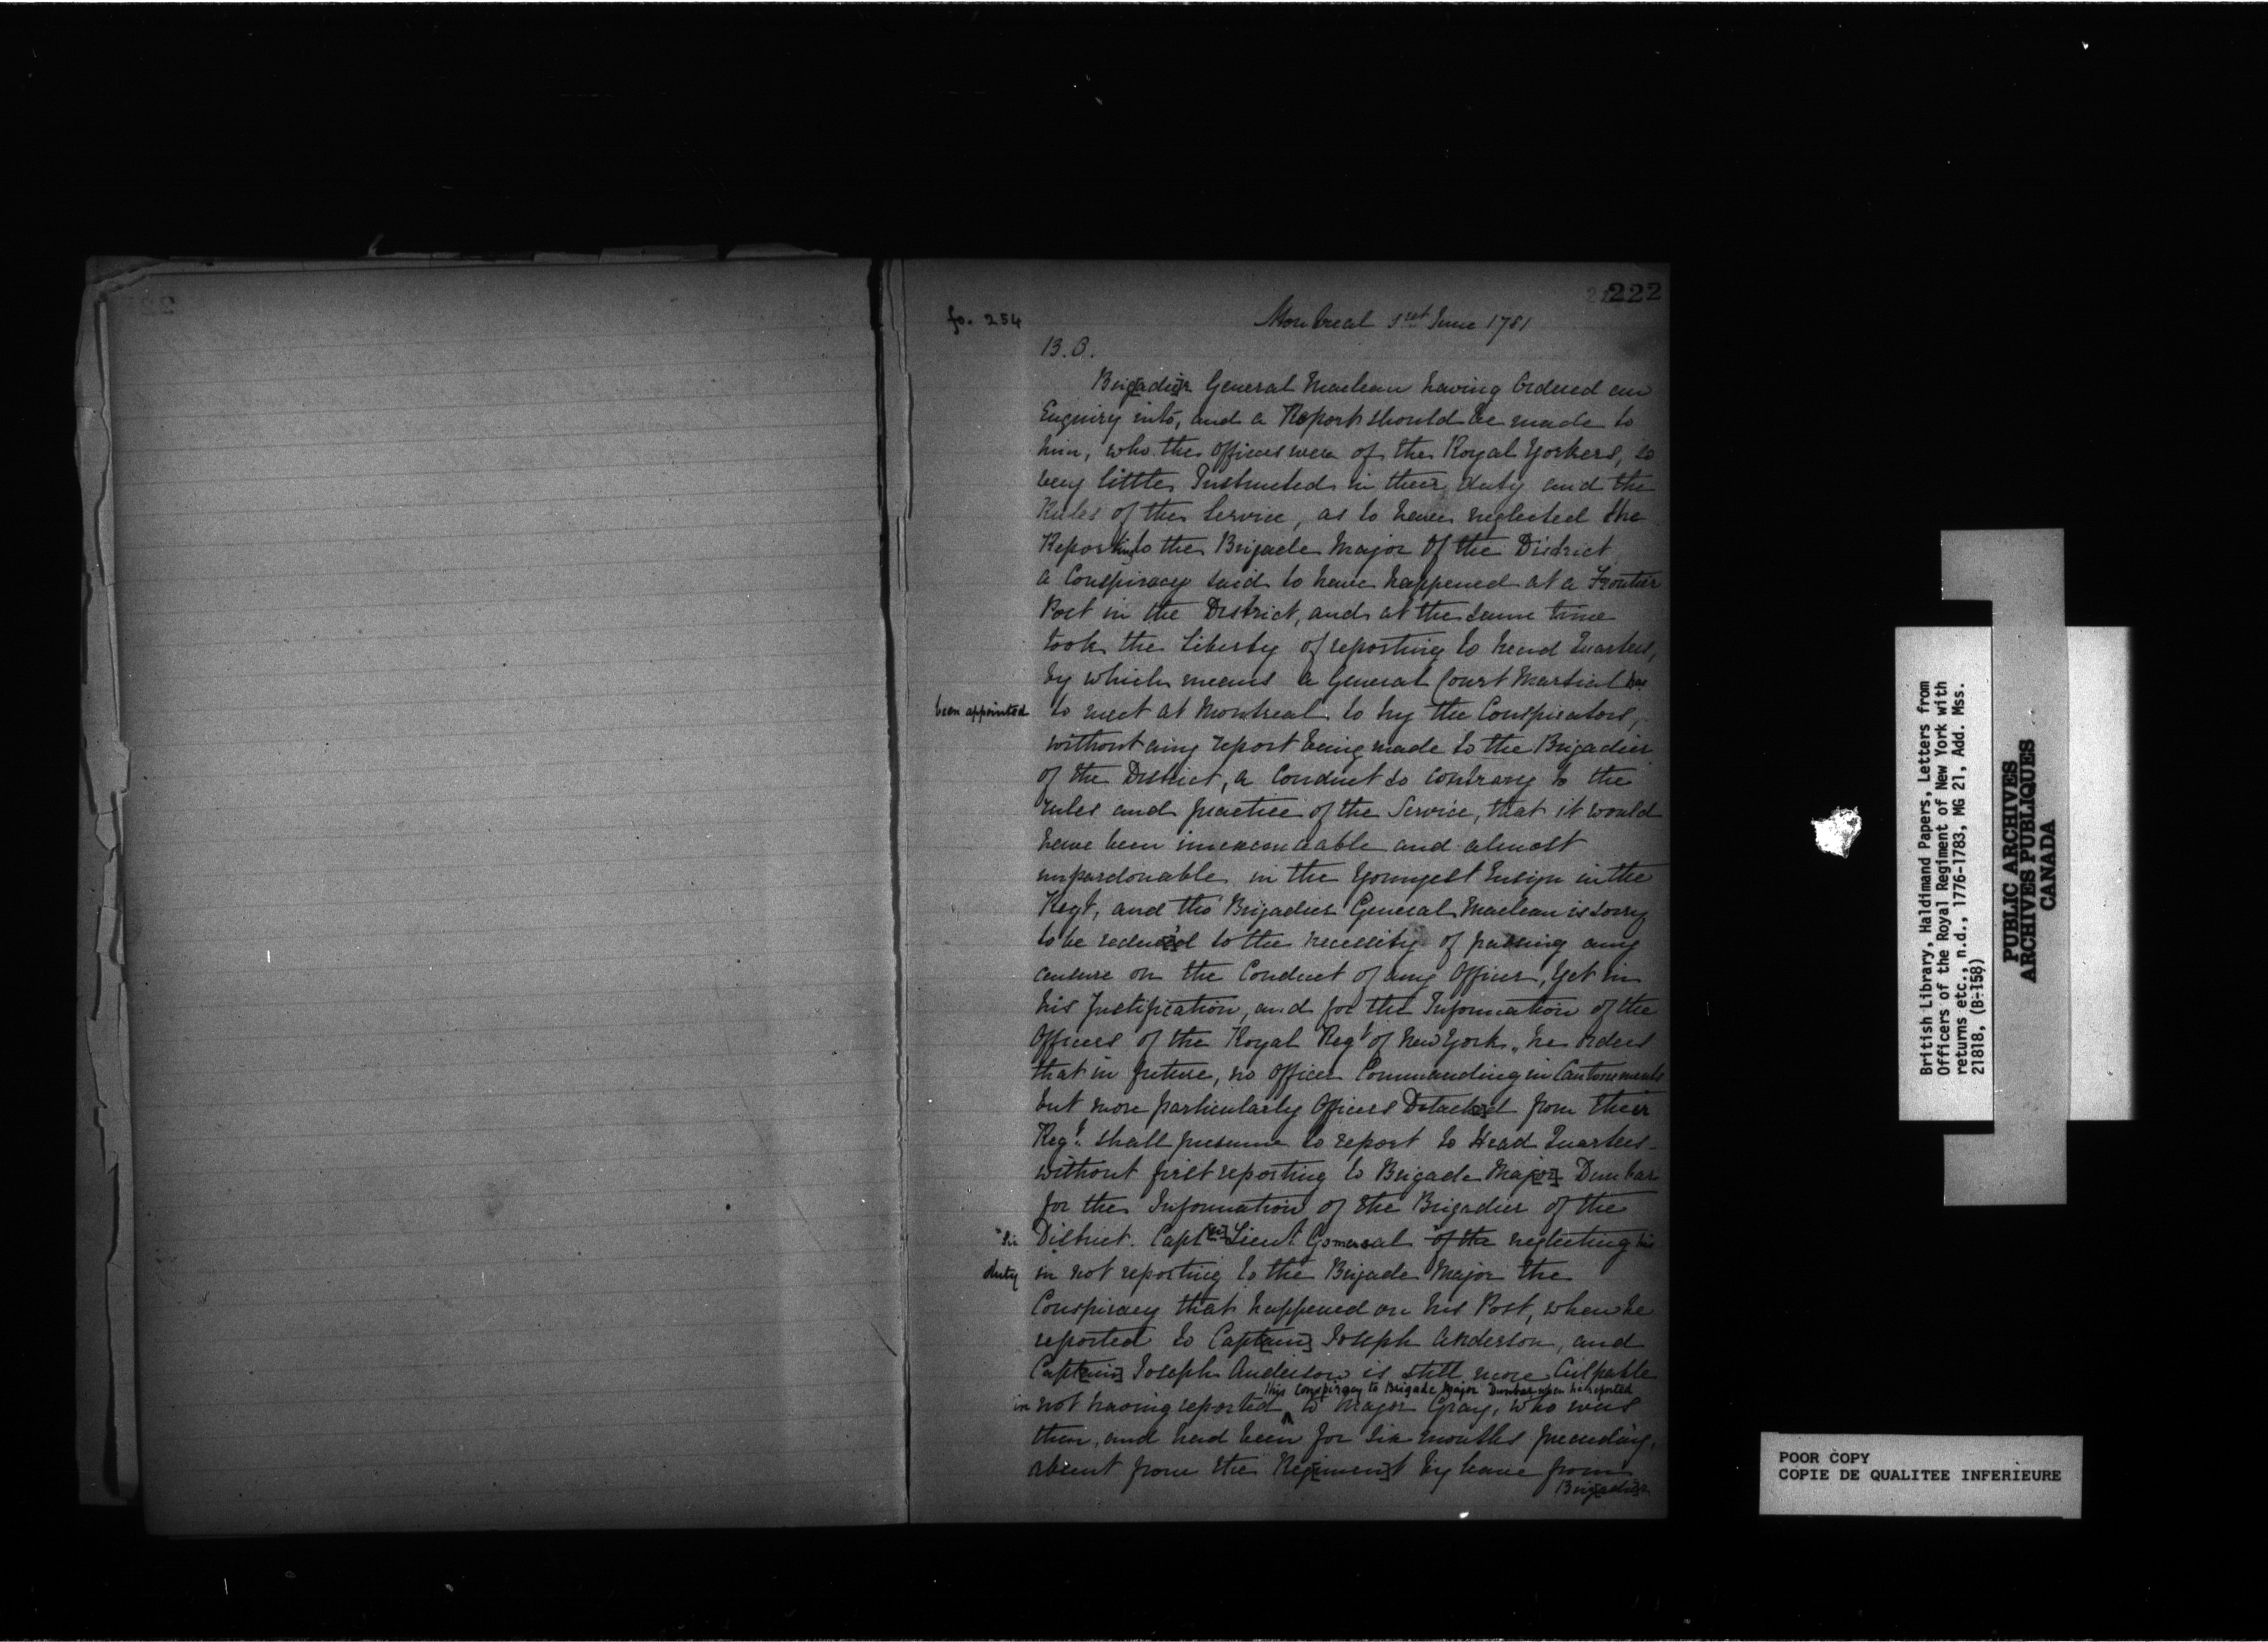 222
fo. 254
Montreal 1st June 1781
B. O.
Brig[adie]r General Maclean having Ordered an
Enquiry into, and a Report should be made to
him, who the officers were of the Royal Yorkers, so
very little Instructed in their duty and the
Rules of the Service, as to have neglected the
Reporting to the Brigade Major Of the District
a Conspiracy said to have happened at a Frontier
Post in the District, and at the same time
took the Liberty of reporting to head Quarters,
by which means a General Court Martial has
been appointed to meet at Montreal to try the Conspirators,
without any report being made to the Brigadier
of the District, a Conduct so contrary to the
rules and practice of the Service, that it would
have been inexcusable and almost
unpardonable in the Youngest Ensign in the
Regt, and tho' Brigadier General Maclean is sorry
to be reduc[e]d to the necessity of passing any
censure on the Conduct of any Officer, Yet in
his Justification, and for the Information of the
Officers of the Royal Regt of New York, he orders
that in future, no Officer Commanding in Cantonments
but more particularly Officers Detach[e]d from their
Regt. shall presume to report to Head Quarters
without first reporting to Brigade Maj[or] Dunbar
for the Information of the Brigadier of the
District. Capt[ain] Lieut. Gomersal of the neglecting his
duty in not reporting to the Brigade Major the
Conspiracy that happened on his Post, when he
reported to Capt[ain] Joseph Anderson, and
Capt[ain] Joseph Anderson is still more Culpable
this conspiracy to Brigade Major Dunbar when he reported
in not having reported ^ to Major Gray, who was
then, and had been for six months preceeding,
absent from the Reg[imen]t by leave from
Brig[adie]r
British Library, Haldimand Papers, Letters from
Officers of the Royal Regiment of New York with
returns etc., n.d., 1776-1783, MG 21, Add. Mss.
21818, (B-158)
PUBLIC ARCHIVES
ARCHIVES PUBLIQUES
CANADA
POOR COPY
COPIE DE QUALITEE INFERIEURE